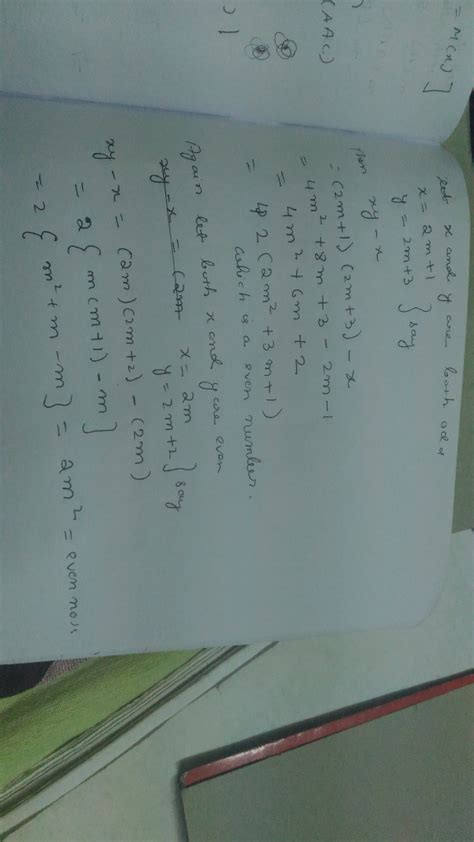 = M(x) ]
(AAC)
) 1
let x and y are both odd
x = 2m+1
y = 2m+3 } say
Now
xy - x
= (2m+1) (2m+3) - x
= 4m² + 8m + 3 - 2m - 1
= 4m² + 6m + 2
= 2 (2m² + 3m + 1)
which is a even number.
Again let both x and y are even
x = 2m
y = 2m+2 } say
xy - x = (2m
xy - x = (2m) (2m+2) - (2m)
= 2 { m(m+1) - m }
= 2 { m² + m - m } = 2m² = even nos